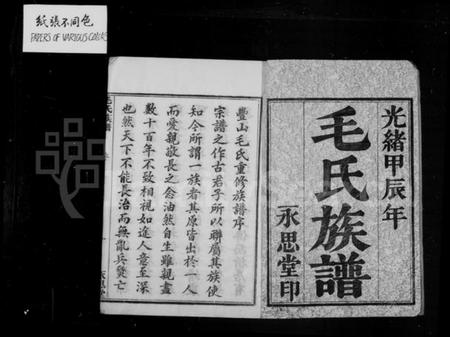 紙張不同色
PAPERS OF VARIOUS COLORS
光緒甲辰年
毛氏族譜
永思堂印
豐山毛氏重修族譜序
宗譜之作古君子所以聯屬其族使
知今所謂一族者其原皆出於一人
而愛親敬長之念油然自生雖親盡
數十百年不致相視如途人意至深
也然天下不能長治而無亂兵燹亡